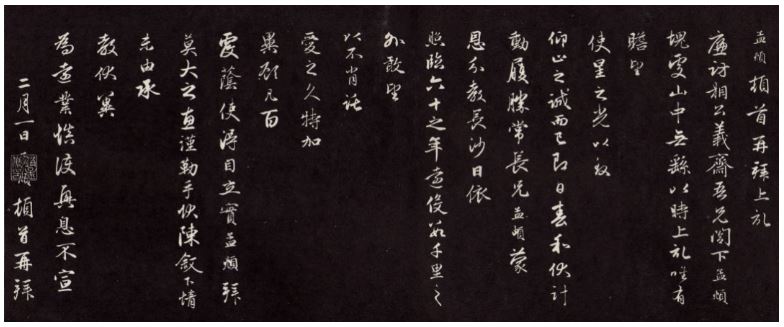 孟頫頓首再拜上記
廉訪相公義齋吾兄閣下孟頫
塊處山中無繇以時上記唯有
瞻望
使星之光以致
仰止之誠而已即日春和伏計
動履勝常長兄孟頫蒙
恩分教長沙日依
照臨六十之年遠役數千里之
外敢望
以不肖託
愛之久特加
異顧凡百
覆蔭使得自立實孟頫拜
莫大之惠謹勒手狀陳敘下情
未由承
教伏冀
為遠業慎護興息不宣
二月一日
頓首再拜